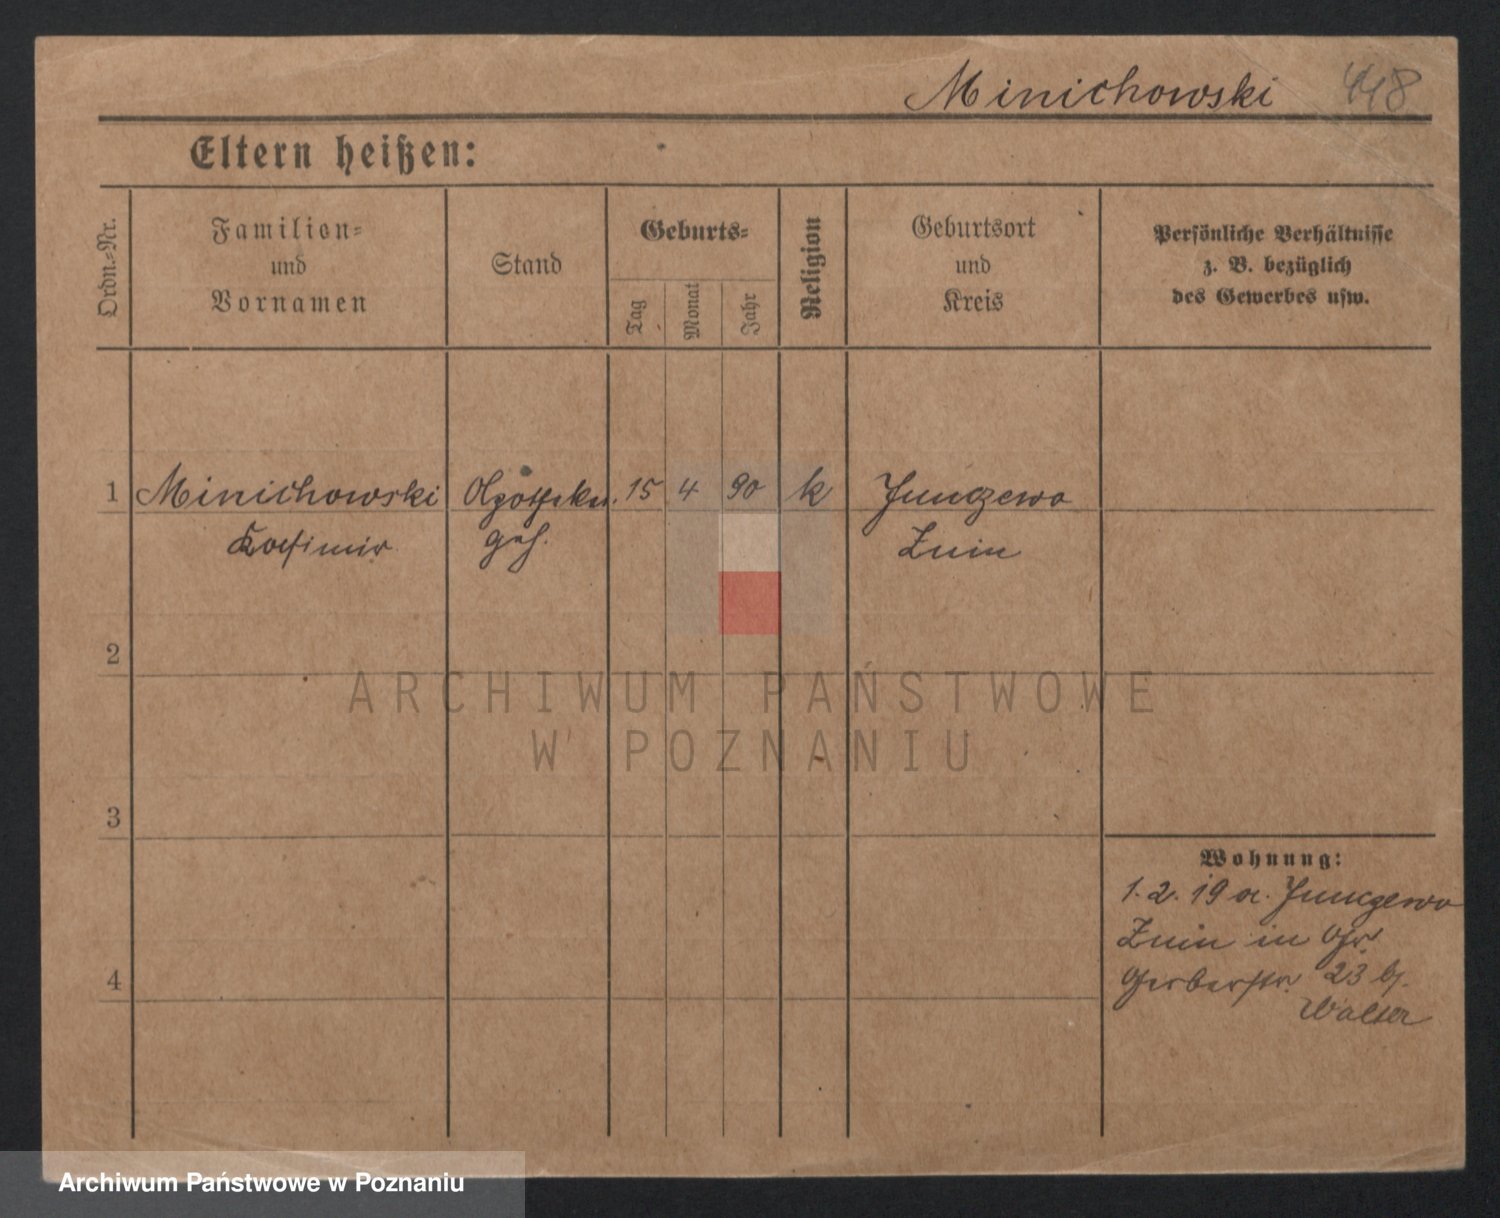 Minichowski 448
Eltern heißen:
Ordn.-Nr.
Familien-
und
Vornamen
Stand
Geburts-
Tag
Monat
Jahr
Religion
Geburtsort
und
Kreis
Persönliche Verhältnisse
z. B. bezüglich
des Gewerbes usw.
1 Minichowski Apotheker. 15 4 90 k
Kasimir geh.
Znin
2
ARCHIWUM PAŃSTWOWE
W POZNANIU
3
Wohnung:
1. 2. 19 a.
Znin in
4
Gerberstr. 23 bj.
Walter
Archiwum Państwowe w Poznaniu